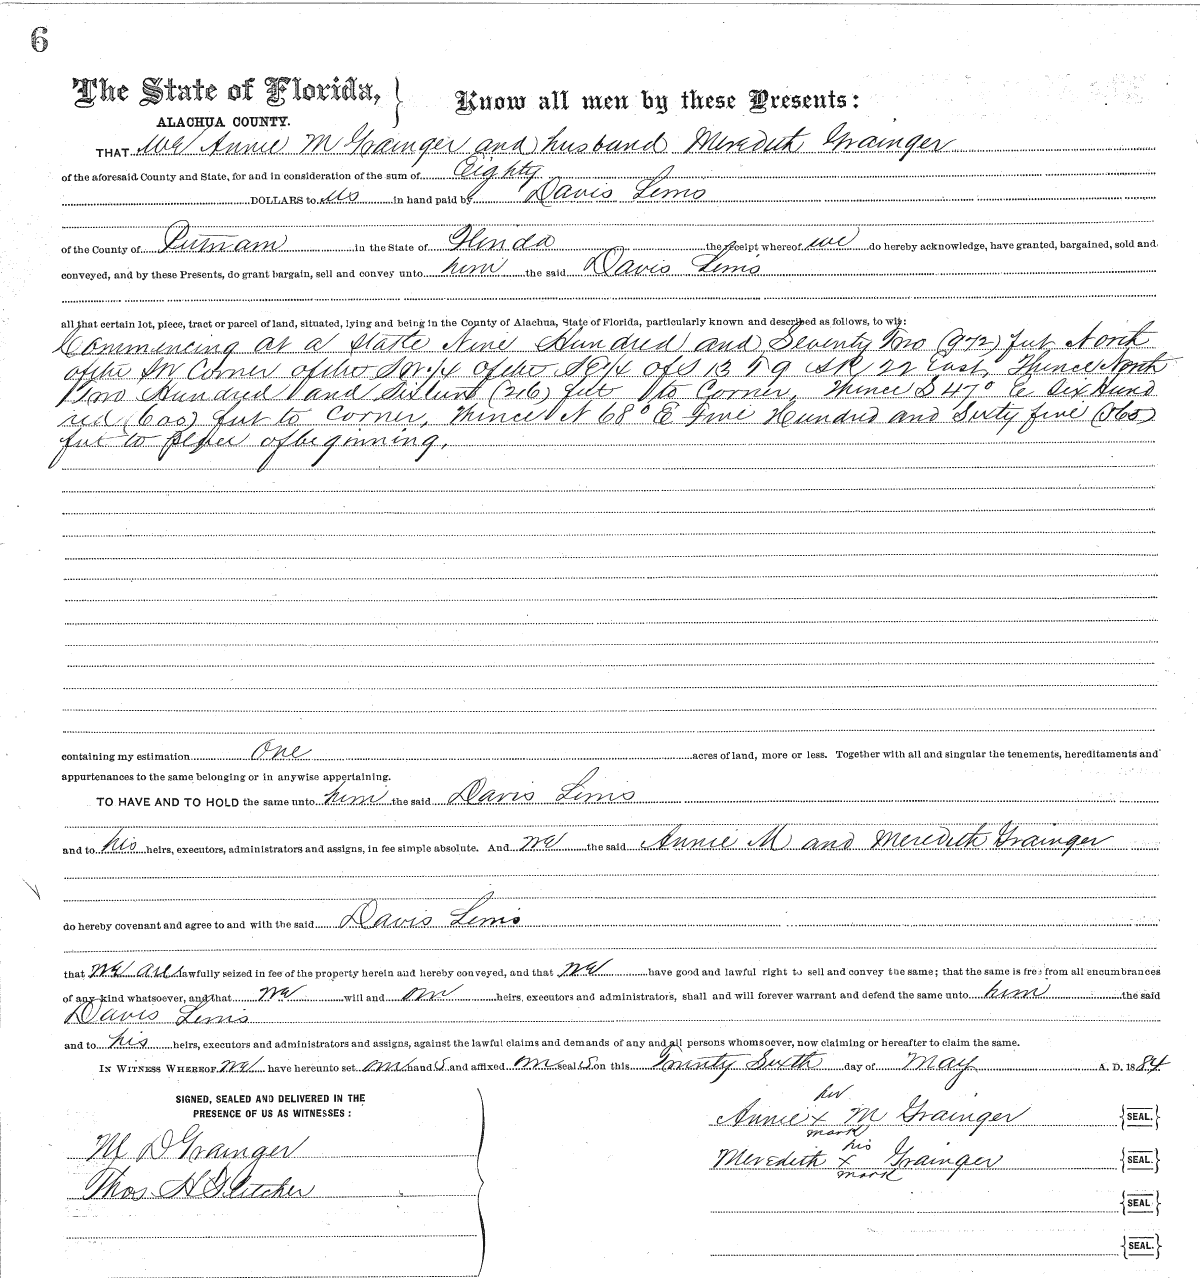 6
The State of Florida,
ALACHUA COUNTY.
Know all men by these Presents:
THAT we Annie M Grainger and husband Meredith Grainger
of the aforesaid County and State, for and in consideration of the sum of Eighty
DOLLARS to us in hand paid by Davis Lims
of the County of Putnam in the State of Florida the receipt whereof we do hereby acknowledge, have granted, bargained, sold and
conveyed, and by these Presents, do grant bargain, sell and convey unto him the said Davis Lims
all that certain lot, piece, tract or parcel of land, situated, lying and being in the County of Alachua, State of Florida, particularly known and described as follows, to wit:
Commencing at a Stake Nine Hundred and Seventy Two (972) feet North
of the SW Corner of the SW 1/4 of the SE 1/4 of S 13 T 9 S R 22 East, Thence North
Two Hundred and Sixteen (216) feet to Corner, Thence S 47° E Six Hund
red (600) feet to Corner, Thence N 68° E Five Hundred and Sixty five (565)
feet to place of beginning,
containing my estimation One acres of land, more or less. Together with all and singular the tenements, hereditaments and
appurtenances to the same belonging or in anywise appertaining.
TO HAVE AND TO HOLD the same unto him the said Davis Lims
and to his heirs, executors, administrators and assigns, in fee simple absolute. And we the said Annie M and Meredith Grainger
do hereby covenant and agree to and with the said Davis Lims
that we are lawfully seized in fee of the property herein and hereby conveyed, and that we have good and lawful right to sell and convey the same; that the same is free from all encumbrances
of any kind whatsoever, and that we will and our heirs, executors and administrators, shall and will forever warrant and defend the same unto him the said
Davis Lims
and to his heirs, executors and administrators and assigns, against the lawful claims and demands of any and all persons whomsoever, now claiming or hereafter to claim the same.
IN WITNESS WHEREOF we have hereunto set our hand S and affixed our seal S on this Twenty Sixth day of May A. D. 1884
SIGNED, SEALED AND DELIVERED IN THE
PRESENCE OF US AS WITNESSES:
M D Grainger
Thos H Fletcher
her
Annie x M Grainger {SEAL.}
mark
his
Meredith x Grainger {SEAL.}
mark
{SEAL}
{SEAL.}